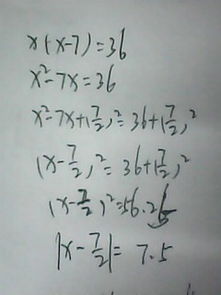 x(x-7)=36
x²-7x=36
x²-7x+(7/2)²=36+(7/2)²
(x-7/2)²=36+(7/2)²
(x-7/2)²=56.26
|x-7/2|=7.5